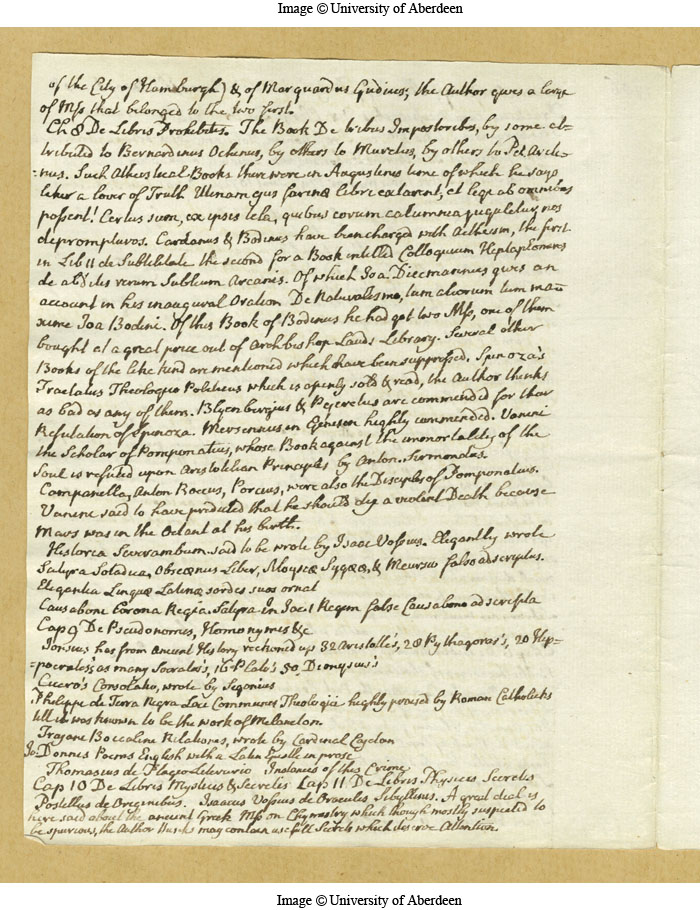 Image © University of Aberdeen
of the City of Hamburgh) & of Marquardus Gudius; the Author gives a large
of Mss that belonged to the two first.
Ch 8 De Libris Prohibitis. The Book De tribus Impostoribus, by some at=
tributed to Bernardinus Ochinus, by others to Muretus, by others to Pet Areti=
=nus. Such Atheistical Books there were in Augustines time of which he says
like a lover of Truth Utinam ejus farinæ libri extarent, et legi ab omnibus
possent! Certus sum, ex ipsis tela, quibus eorum calumnia juguletur, nos
deprompturos. Cardanus & Bodinus have been charged with Atheism, the first
in Lib 11 de Subtilitate the second for a Book intitled Colloquium Heptaplomeres
de abditis rerum Sublium Arcanis. Of which Joa: Diecmannus gives an
account in his inaugural Oration De Naturalismo, tum aliorum tum max
xime Joa Bodini. Of this Book of Bodinus he had got two Mss, one of them
bought at a great price out of Archbishop Lauds Library. Several other
Books of the like kind are mentioned which have been suppressed. Spinoza's
Tractatus Theologico Politicus which is openly sold & read, the Author thinks
as bad as any of them. Blyenburgius & Pejeretus are commended for their
Refutation of Spinoza. Mersennius in Genesin highly commended. Vanini
the Scholar of Pomponatius, whose Book against the immortality of the
Soul is refuted upon Aristotelian Principles by Anton. Sirmondus.
Campanella, Anton Rocus, Porcius, were also the Disciples of Pomponatius.
Vanini said to have predicted that he should dye a violent Death because
Mars was in the Octant at his birth.
Historia Severambum said to be wrote by Isaac Vossius. Elegantly wrote
Satyra Sotadica, Obscænus Liber, Aloysiæ Sygææ, & Meursio falso adscriptus.
Elegantia Linguæ Latinæ sordes suas ornat
Causaboni Corona Regia. Satyra in Jac 1 Regem false Causabono adscripta
Cap 9 De Pseudonomis, Homonymis &c
Jonsius has from ancient History reckoned up 32 Aristotle's, 28 Pythagoras's, 20 Hip=
=pocrates's as many Socrates's, 16 Plato's 50 Dionysius's
Cicero's Consolatio, wrote by Sigonius
Philippi de Terra Nigra Loci Communes Theologici highly praised by Roman Catholicks
till it was known to be the work of Melancton.
Trajane Boccalini Relationes, wrote by Cardinal Cajetan
Jo: Donnis Poems English with a Latin Epistle in prose
Thomasius de Plagio Literario Instances of this Crime
Cap 10 De Libris Mysticis & Secretis Cap 11 De Libris Physicis Secretis
Postellus de Originibus. Isaacus Vossius de Oraculis Sibyllinis. A great deal is
here said about the ancient Greek Mss on Chymistry which though mostly suspected to
be spurious, the Author thinks may contain usefull Secrets which deserve Attention.
Image © University of Aberdeen